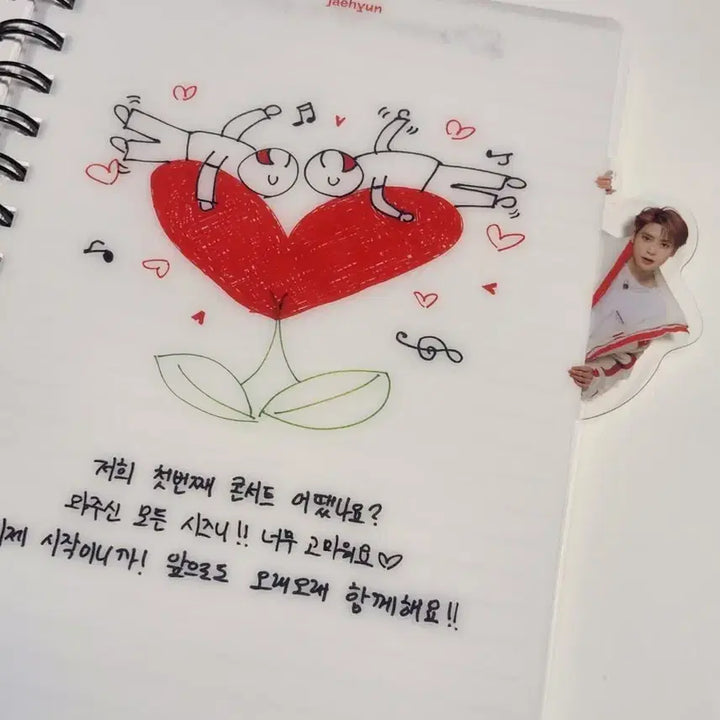 jaehyun
저희 첫번째 콘서트 어땠나요?
와주신 모든 시즈니!! 너무 고마워요♡
이제 시작이니까! 앞으로도 오래오래 함께해요!!